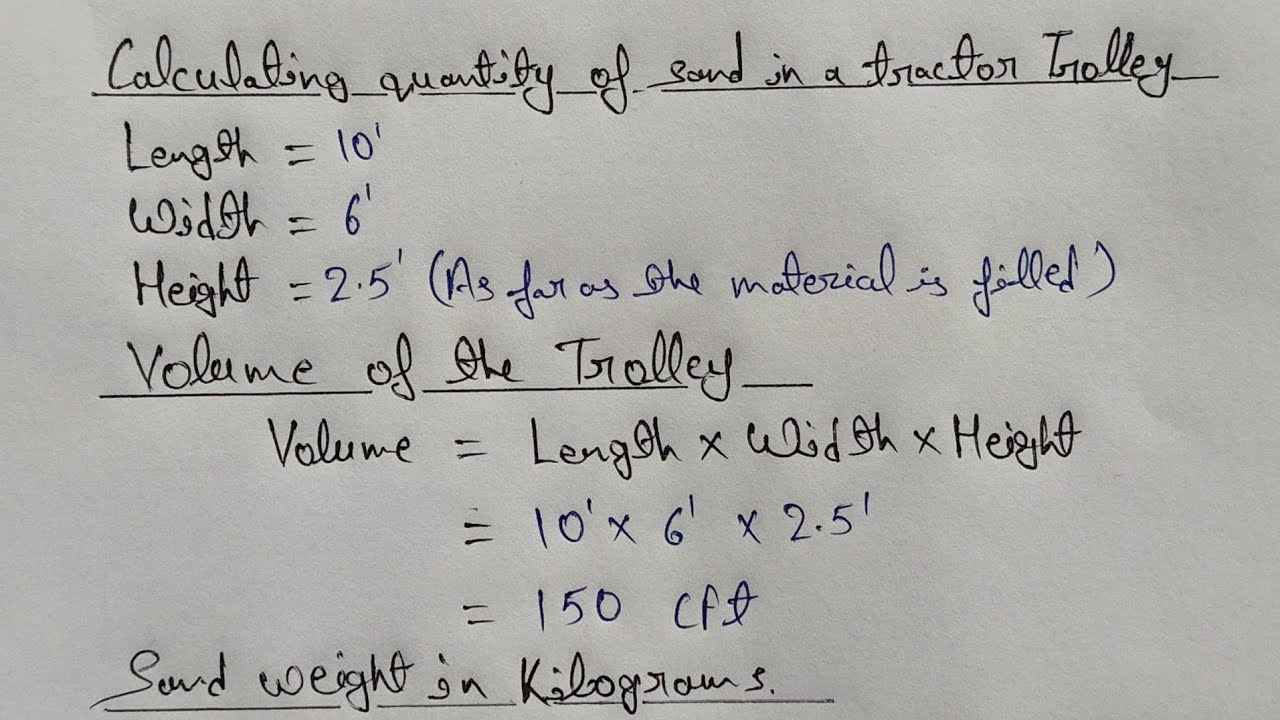 Calculating quantity of sand in a tractor Trolley
Length = 10'
Width = 6'
Height = 2.5' (As far as the material is filled)
Volume of the Trolley
Volume = Length × Width × Height
= 10' × 6' × 2.5'
= 150 cft
Sand weight in Kilograms.